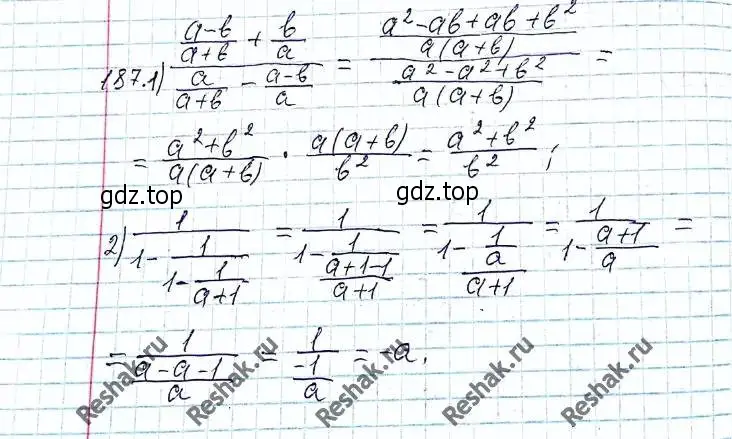 187.1) ((a-в)/(a+в) + в/a) / (a/(a+в) - (a-в)/a) = ((a²-aв+aв+в²)/(a(a+в))) / ((a²-a²+в²)/(a(a+в))) =
= (a²+в²)/(a(a+в)) · (a(a+в))/в² = (a²+в²)/в² ;
gdz.top gdz.top
2) 1/(1-1/(1-1/(a+1))) = 1/(1-1/((a+1-1)/(a+1))) = 1/(1-(1/a)/(a+1)) = 1/(1-(a+1)/a) =
= 1/((a-a-1)/a) = 1/(-1/a) = -a.
Reshak.ru Reshak.ru Reshak.ru Reshak.ru Reshak.ru